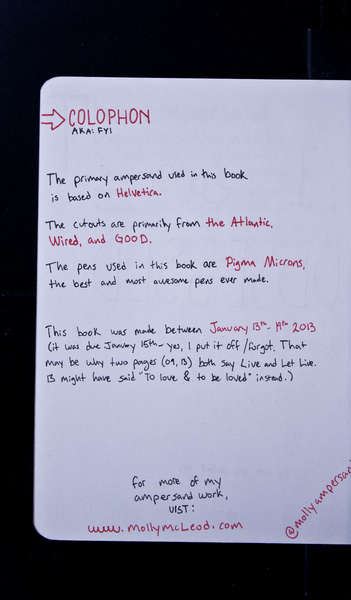 COLOPHON
AKA: FYI
The primary ampersand used in this book
is based on Helvetica.
The cutouts are primarily from the Atlantic,
Wired, and GOOD.
The pens used in this book are Pigma Microns,
the best and most awesome pens ever made.
This book was made between January 13th - 19th 2013
(it was due January 15th - yes, I put it off/forgot. That
may be why two pages (09, 13) both say Live and Let Live.
13 might have said "To love & to be loved" instead.)
for more of my
ampersand work,
VIST:
www.mollymcleod.com